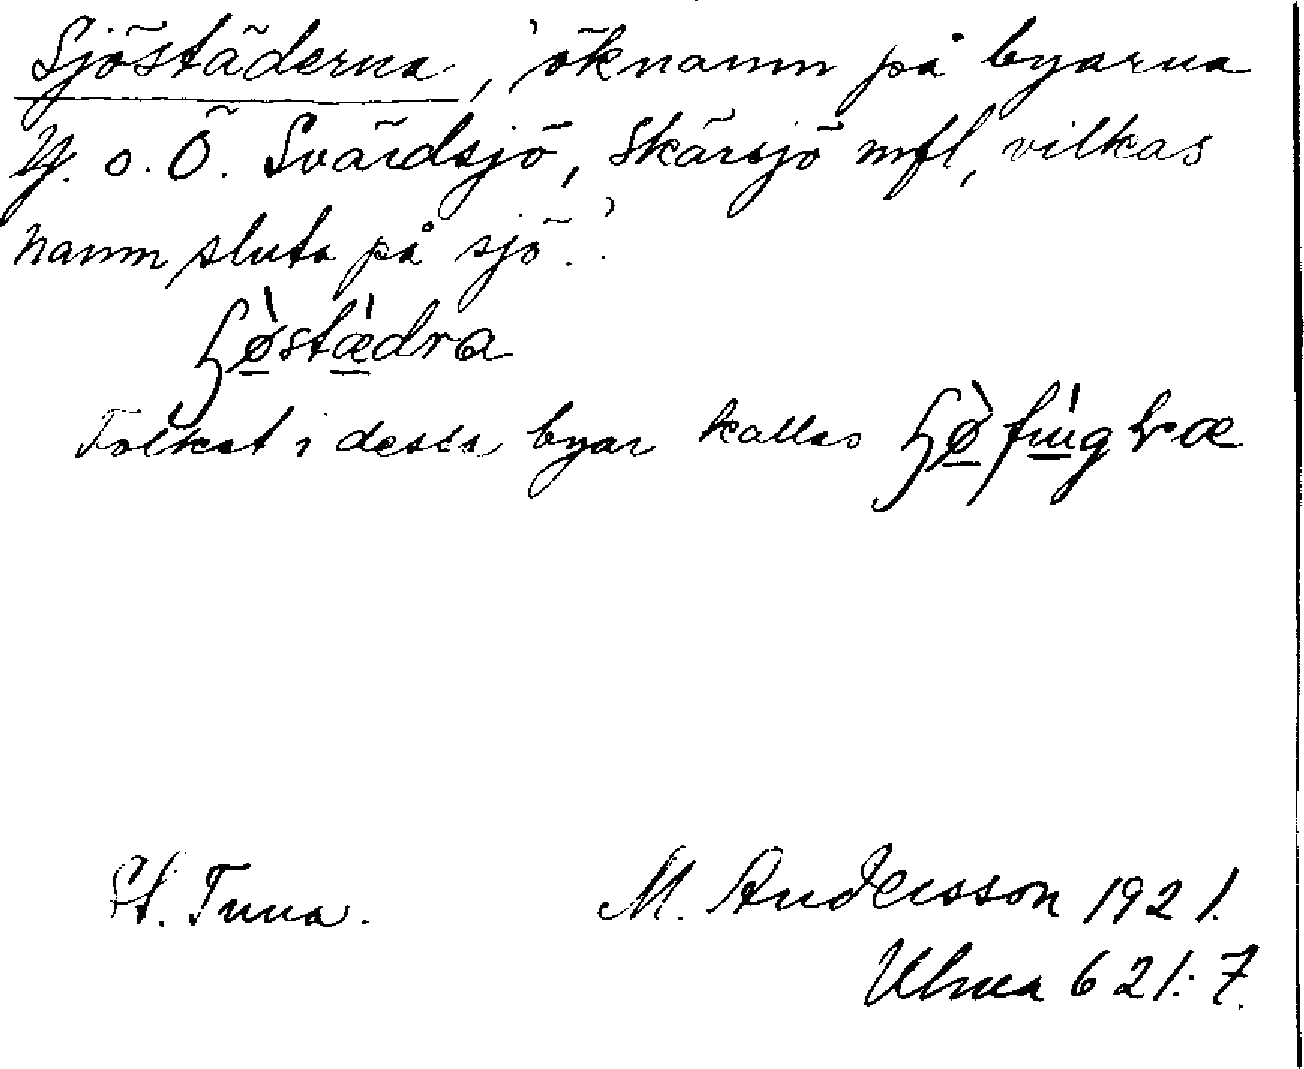 Sjöstäderna, 'öknamn på byarna
Y. o. Ö. Svärdsjö, Skärsjö mfl, vilkas
namn sluta på sjö.'
Folket i dessa byar kallas
St. Tuna. M. Andersson 1921.
Ulma 621:7.